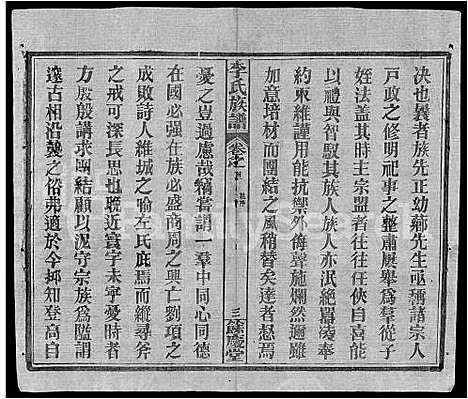 決也曩者族先正幼薌先生亟稱諸宗人
戸政之修明祀事之整肅屢舉為羣從子
姪法蓋其時主宗盟者往往任俠自喜構
以禮與智馭其族人族人亦泯絕囂凌奉
約束維謹用能抗禦外侮聲施爛然邇雖
加意培材而團結之風稍替矣達者惄焉
李氏族譜
卷七
三
餘慶堂
憂之豈過慮哉犕嘗謂一羣中同心同德
在國必強在族必盛商周之興亡劉項之
成敗詩人維城之喻左氏庇焉而縱尋斧
之戒可深長思也聯近寰宇未寧憂時者
方殷殷講求團結顧以泥守宗族為隘謂
遠古相沿襲之俗弗適於今抑知登高自